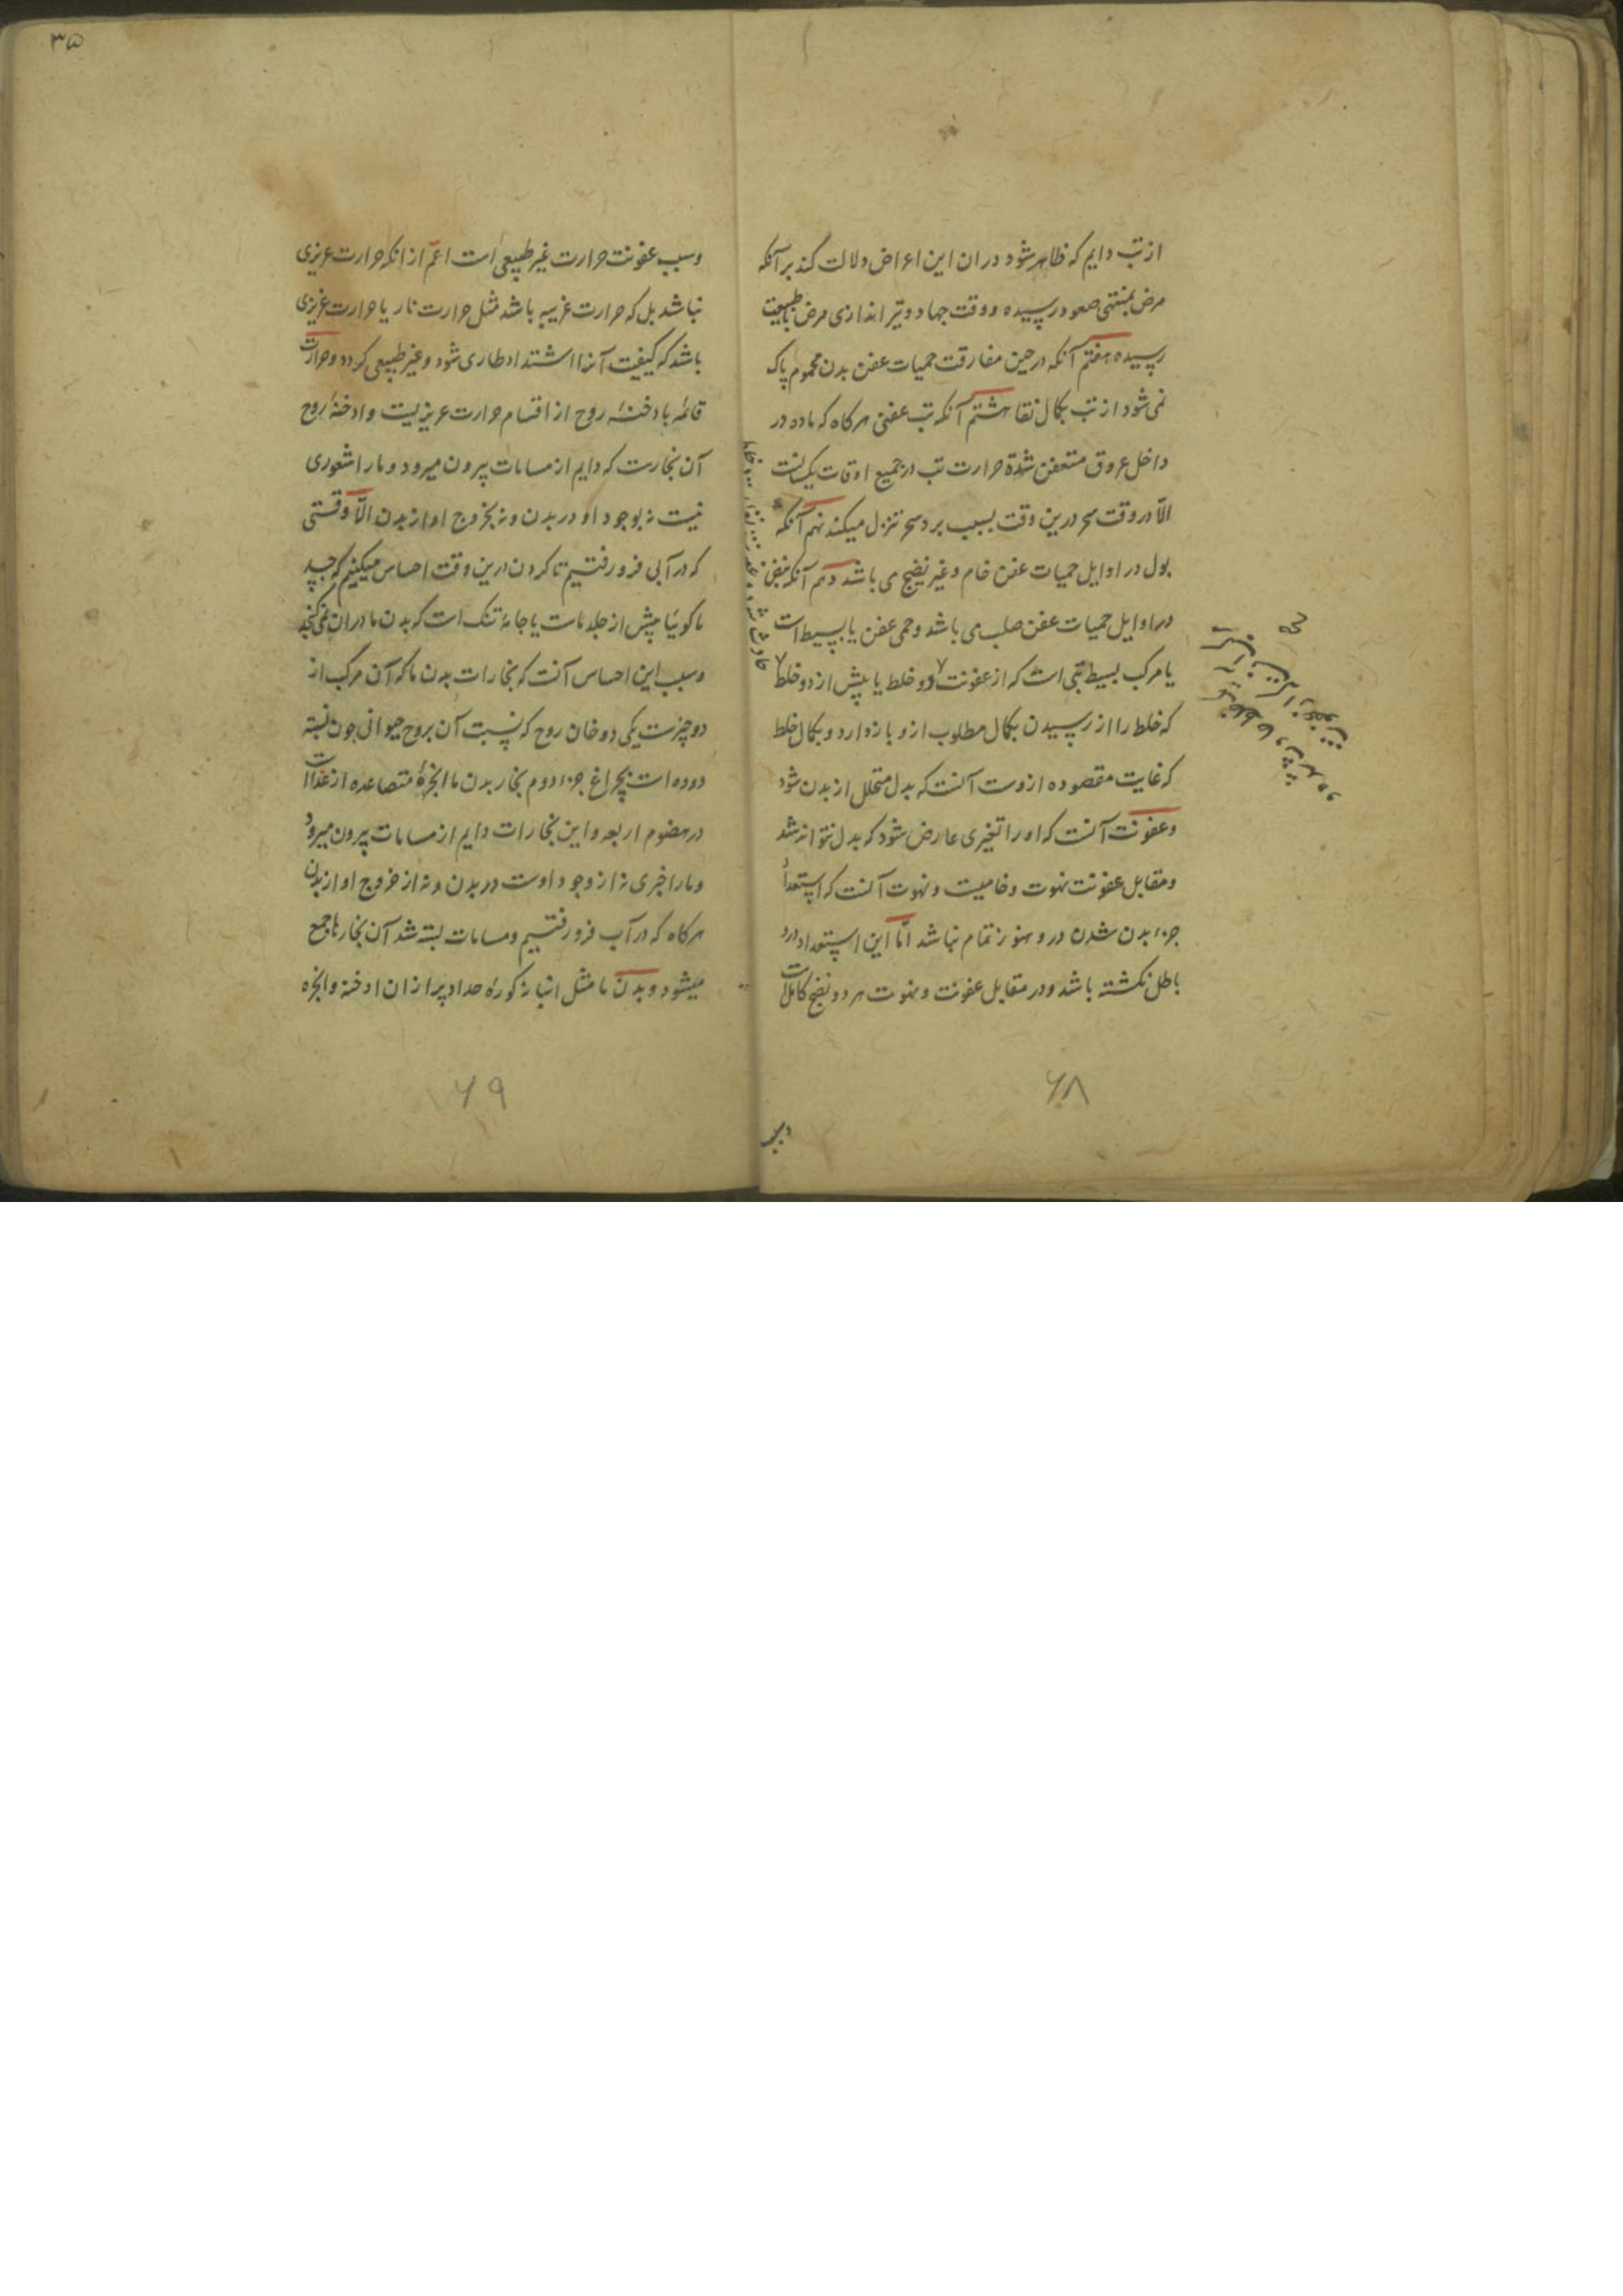 از تب دایم که ظاهر شود دران این اعراض دلالت کند برآنکه
مرض بمنتهی صعود رسیده و وقت جهاد و تیر اندازی مرض با طبیعت
رسیده هفتم آنکه در حین مفارقت حمیات عفن بدن محموم پاک
نمی شود از تب بکمال نقا هشتم آنکه تب عفنی هرکاه که ماده در
داخل عروق متعفن شده حرارت تب در جمیع اوقات یکسانست
الّا در وقت سحر درین وقت بسبب برد سحر تنزل میکند نهم آنکه
بول در اوایل حمیات عفن خام و غیر نضیج می باشد دهم آنکه نبض
در اوایل حمیات عفن صلب می باشد و حمی عفن یا بسیط است
یا مرکب بسیط تبی است که از عفونت دو خلط یا بیش از دو خلط
که خلط را از رسیدن بکمال مطلوب ازو باز دارد و کمال خلط
که غایت مقصوده ازوست آنست که بدل متحلل از بدن شود
وعفونت آنست که او را تغیری عارض شود که بدل نتواند شد
ومقابل عفونت نهوت و خامیست و نهوت آنست که استعداد
جزء بدن شدن درو هنوز تمام نباشد امّا این استعداد درو
باطل نکشته باشد و در مقابل عفونت و نهوت هر دو نضج کاملست
۶۸
۳۵
وسبب عفونت حرارت غیر طبیعی است اعمّ ازانکه حرارت غریزی
نباشد بل که حرارت غریبه باشد مثل حرارت نار یا حرارت غریزی
باشد که کیفیت آنرا اشتداد طاری شود و غیر طبیعی کردد وحرارت
قائمه بادخنهٔ روح از اقسام حرارت غریزیست وادخنهٔ روح
آن بخارست که دایم از مسامات بیرون میرود و ما را شعوری
نیست نه بوجود او در بدن و نه بخروج او از بدن الّا وقتی
که در آبی فرو رفتیم تا کردن درین وقت احساس میکنیم که جسد
ما کوئیا بیش از جلد ماست یا جامهٔ تنک است که بدن ما دران نمی کنجد
وسبب این احساس آنست که بخارات بدن ما که آن مرکب از
دو چیزست یکی دخان روح که نسبت آن بروح حیوانی چون نسبت
دوده است بچراغ جزء دوم بخار بدن ما ابخرهٔ متصاعده از غذاست
در هضوم اربعه و این بخارات دایم از مسامات بیرون میرود
و ما را خبری نه از وجود اوست در بدن و نه از خروج او از بدن
هرکاه که در آب فرو رفتیم ومسامات بسته شد آن بخارها جمع
میشود و بدن ما مثل انبانهٔ کورهٔ حداد پر ازان ادخنه وابخره
۶۹